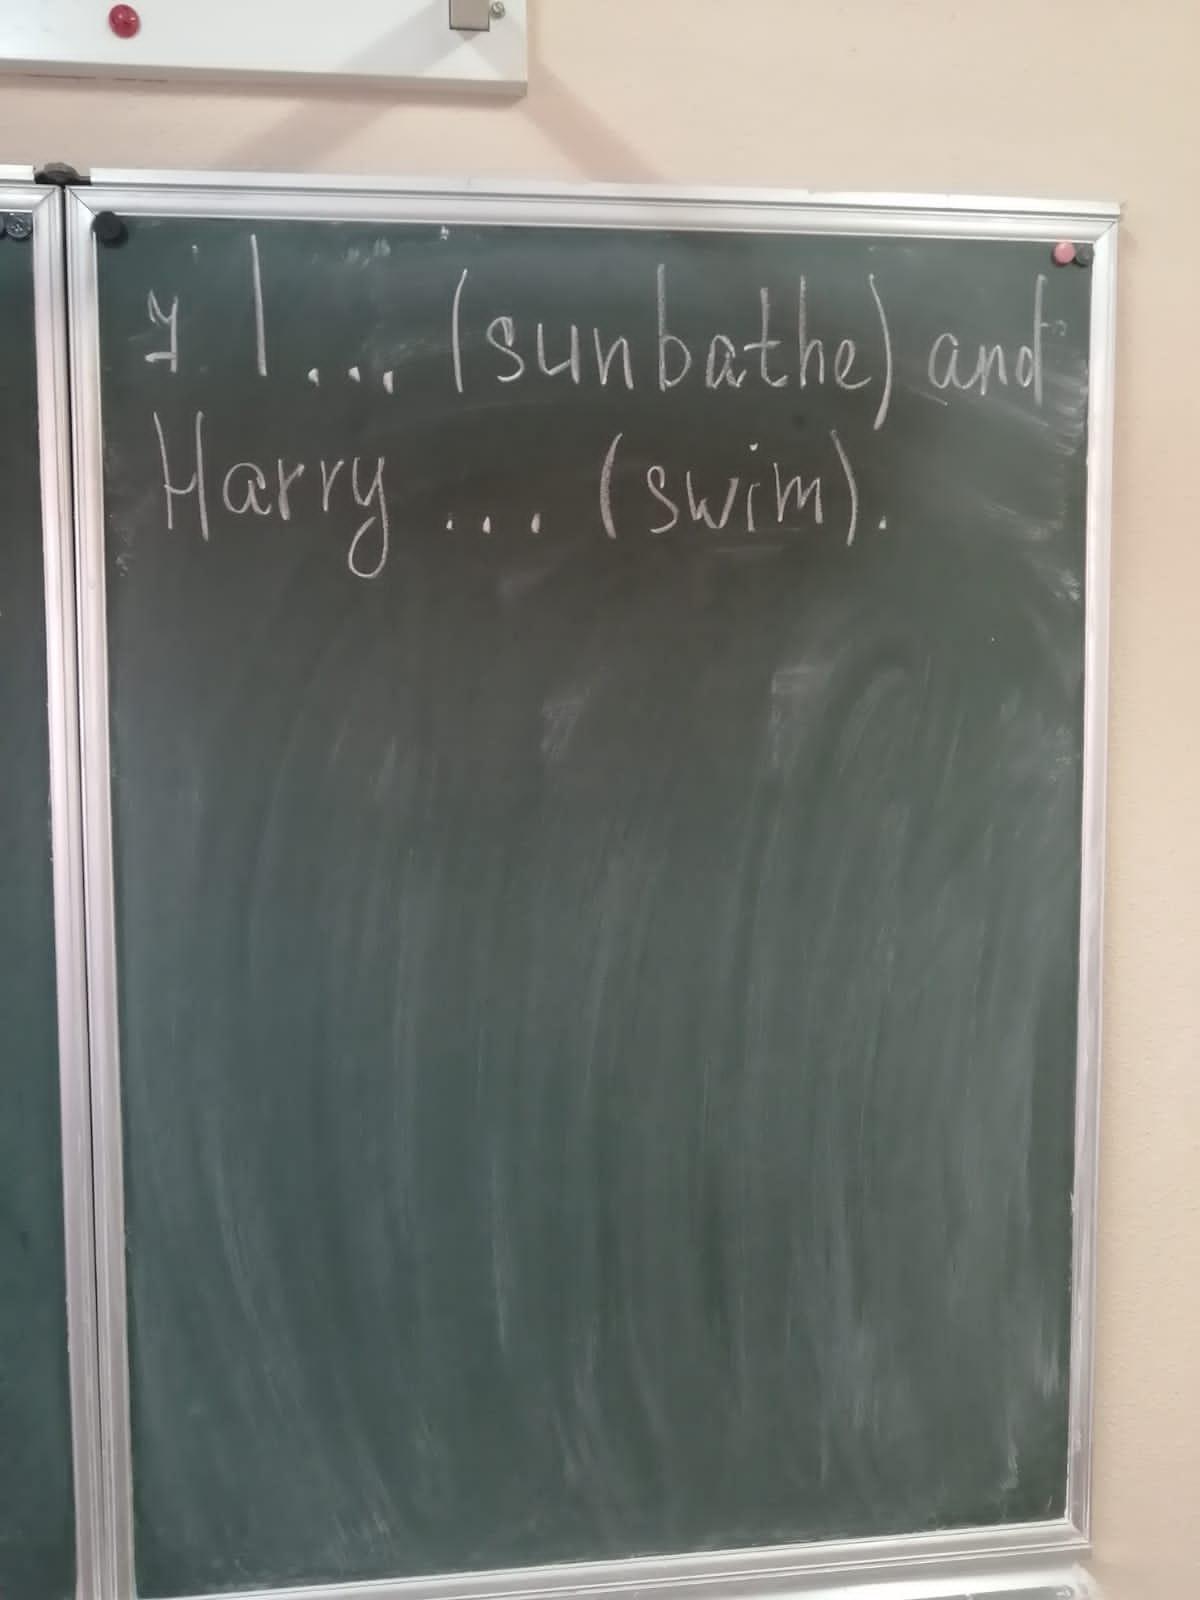 7. I ... (sunbathe) and
Harry ... (swim).